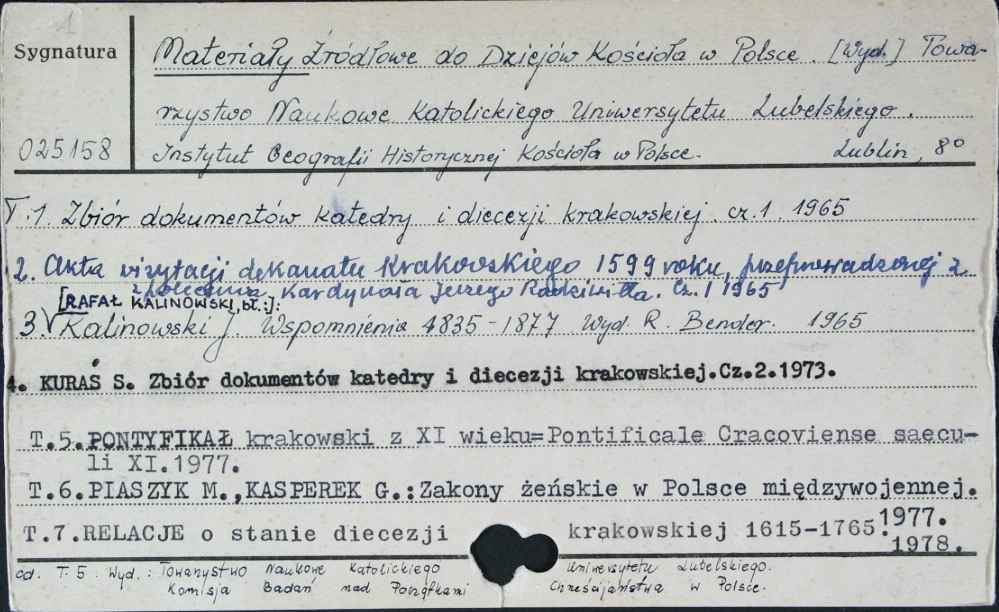 1
Sygnatura
Materiały Źródłowe do Dziejów Kościoła w Polsce. [Wyd.] Towa-
rzystwo Naukowe Katolickiego Uniwersytetu Lubelskiego.
025158
Instytut Geografii Historycznej Kościoła w Polsce. Lublin, 8°
T.1. Zbiór dokumentów katedry i diecezji krakowskiej. cz.1. 1965
2. Akta wizytacji dekanatu Krakowskiego 1599 roku, przeprowadzonej z
polecenia Kardynała Jerzego Radziwiłła. Cz.1 1965
[RAFAŁ KALINOWSKI, bł.:].
3. Kalinowski J. Wspomnienia 1835-1877 Wyd. R. Bender. 1965
4. KURAŚ S. Zbiór dokumentów katedry i diecezji krakowskiej.Cz.2.1973.
T.5.PONTYFIKAŁ krakowski z XI wieku=Pontificale Cracoviense saecu-
li XI.1977.
T.6.PIASZYK M.,KASPEREK G.:Zakony żeńskie w Polsce międzywojennej.
1977.
T.7.RELACJE o stanie diecezji krakowskiej 1615-1765.
1978.
od. T.5. Wyd.: Towarzystwo Naukowe Katolickiego Uniwersytetu Lubelskiego.
Komisja Badań nad Początkami Chrześcijaństwa w Polsce.